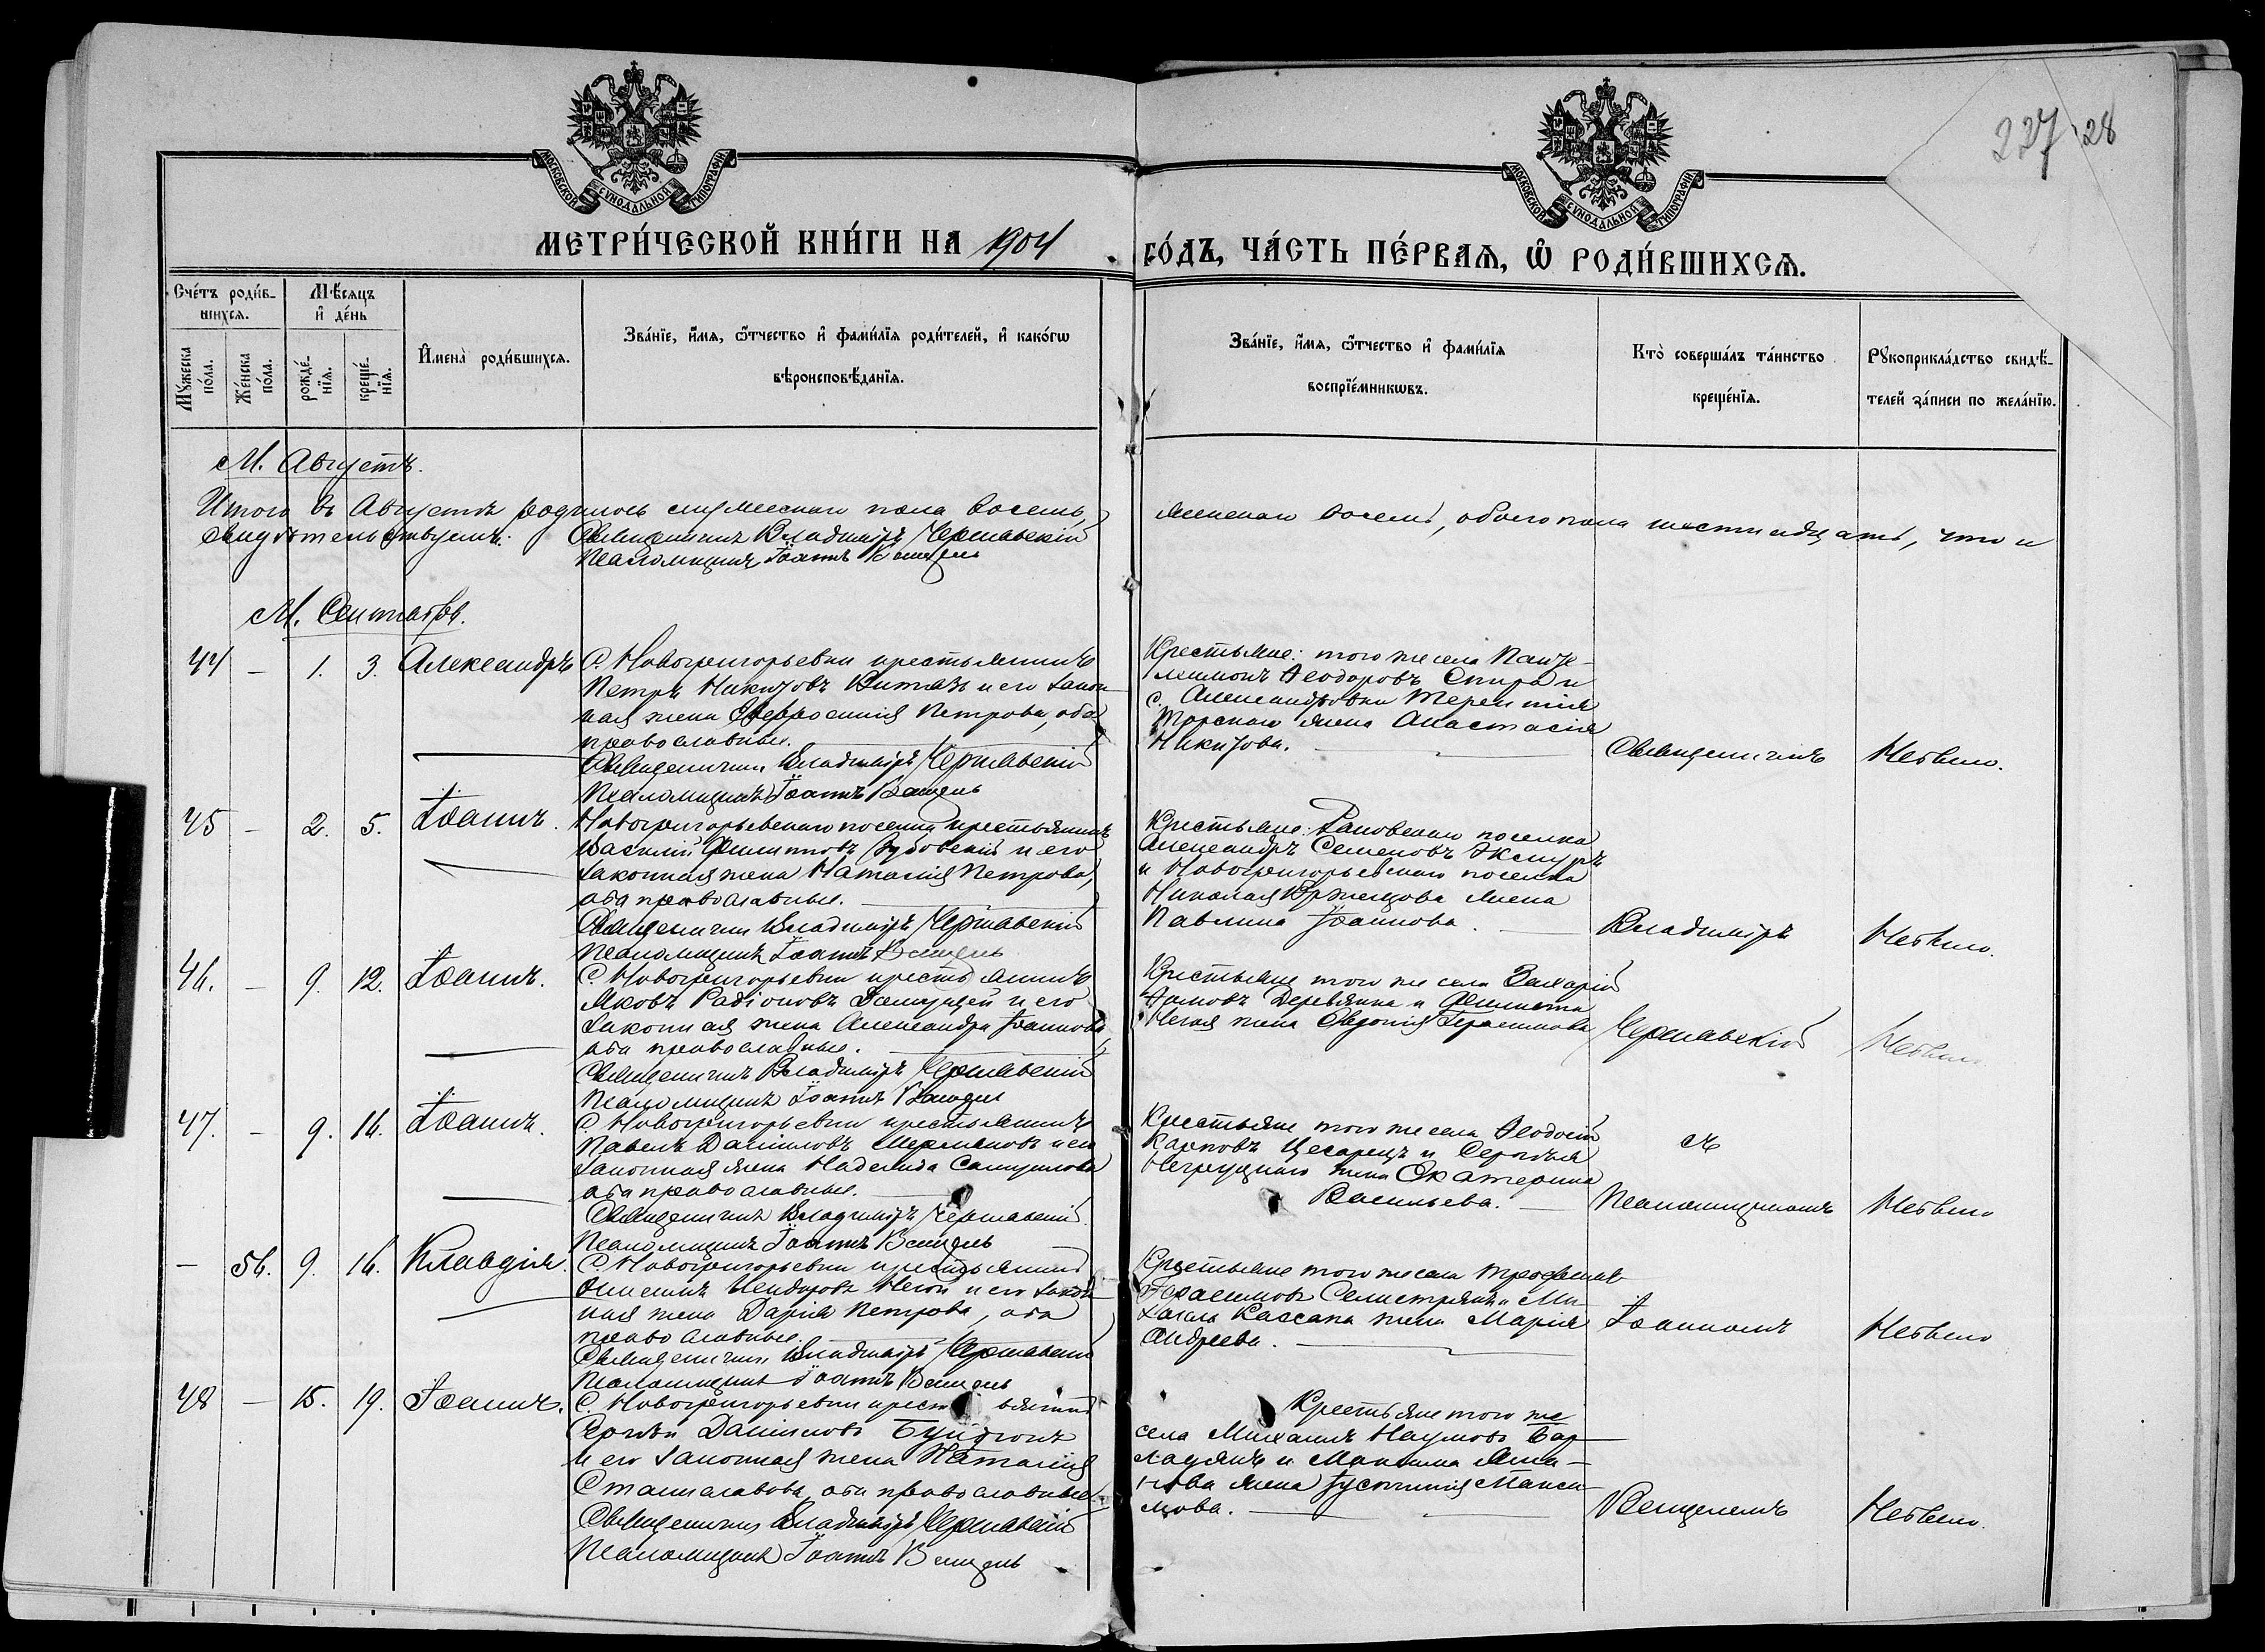 227 28
МОСКОВСКОЙ СѴНОДАЛЬНОЙ ТИПОГРАФІИ
МОСКОВСКОЙ СѴНОДАЛЬНОЙ ТИПОГРАФІИ
МЕТРИ́ЧЕСКОЙ КНИ́ГИ НА 1904 ГО́ДЪ, ЧА́СТЬ ПЕ́РВАѦ, Ѡ҆ РОДИ́ВШИХСѦ.
Сче́тъ роди́в-
шихсѧ.
Мꙋ́жеска по́ла.
Же́нска по́ла.
Мѣ́сѧцъ
и҆ де́нь
рожде́-
нїѧ.
креще́-
нїѧ.
И҆мена̀ роди́вшихсѧ.
Зва́нїе, и҆́мѧ, ѻ҆́тчество и҆ фами́лїѧ роди́телей, и҆ како́гѡ
вѣроисповѣ́данїѧ.
Зва́нїе, и҆́мѧ, ѻ҆́тчество и҆ фами́лїѧ
воспрїе́мникѡвъ.
Кто̀ соверша́лъ та́инство
креще́нїѧ.
Рꙋкоприкла́дство свидѣ́-
телей за́писи по жела́нїю.
М. Августъ.
Итого въ Августѣ родилось мужескаго пола восемь, женскаго восемь, обоего пола шестнадцать, что и
свидѣтельствуемъ. Священникъ Владиміръ Чернавскій
Псаломщикъ Іоаннъ
М. Сентябрь.
44 – 1. 3. Александръ
С. Новогригорьевки крестьянинъ
Петръ Никитовъ Витязь и его закон-
ная жена Евфросинія Петрова, оба
православные.
Священникъ Владиміръ Чернавскій
Псаломщикъ Іоаннъ
Крестьяне: того же села Панте-
леимонъ Ѳеодоровъ Спира и
с. Александровки Терентія
жена Анастасія
Никитова.
Священникъ
Не было.
45 – 2. 5. Іоаннъ.
Новогригорьевскаго поселка крестьянинъ
Василій Филипповъ и его
законная жена Наталія Петрова,
оба православные.
Священникъ Владиміръ Чернавскій
Псаломщикъ Іоаннъ
Крестьяне: поселка
Александръ Семеновъ
и Новогригорьевскаго поселка
Николая жена
Павлина Іоаннова.
Владиміръ
Не было.
46. – 9. 12. Іоаннъ.
С. Новогригорьевки крестьянинъ
Яковъ Радіоновъ и его
законная жена Александра Іоаннова,
оба православные.
Священникъ Владиміръ Чернавскій
Псаломщикъ Іоаннъ
Крестьяне того же села Захарій
Деревянка и Филиппа
Негая жена Евдокія Герасимова
Чернавскій
Не было
47. – 9. 16. Іоаннъ.
С. Новогригорьевки крестьянинъ
Павелъ Даніиловъ и его
законная жена Надежда Самуилова
оба православные.
Священникъ Владиміръ Чернавскій.
Псаломщикъ Іоаннъ
Крестьяне того же села Ѳеодосій
Карповъ Цесарецъ и Сергія
Негруцкаго жена Екатерина
Васильева.
съ
Псаломщикомъ
Не было
– 56. 9. 16. Клавдія.
С. Новогригорьевки крестьянинъ
Негой и его закон-
ная жена Дарія Петрова, оба
православные.
Священникъ Владиміръ Чернавскій
Псаломщикъ Іоаннъ
Крестьяне того же села
Герасимовъ и Ми-
хаила жена Марія
Андреева.
Іоанномъ
Не было
48 – 15. 19. Іоаннъ.
С. Новогригорьевки крестьянинъ
Сергѣй Даніиловъ
и его законная жена Наталія
Станиславова, оба православные.
Священникъ Владиміръ Чернавскій
Псаломщикъ Іоаннъ
Крестьяне того же
села Михаилъ Наумовъ
и Максима
жена Іустинія Макси-
мова.
Не было.